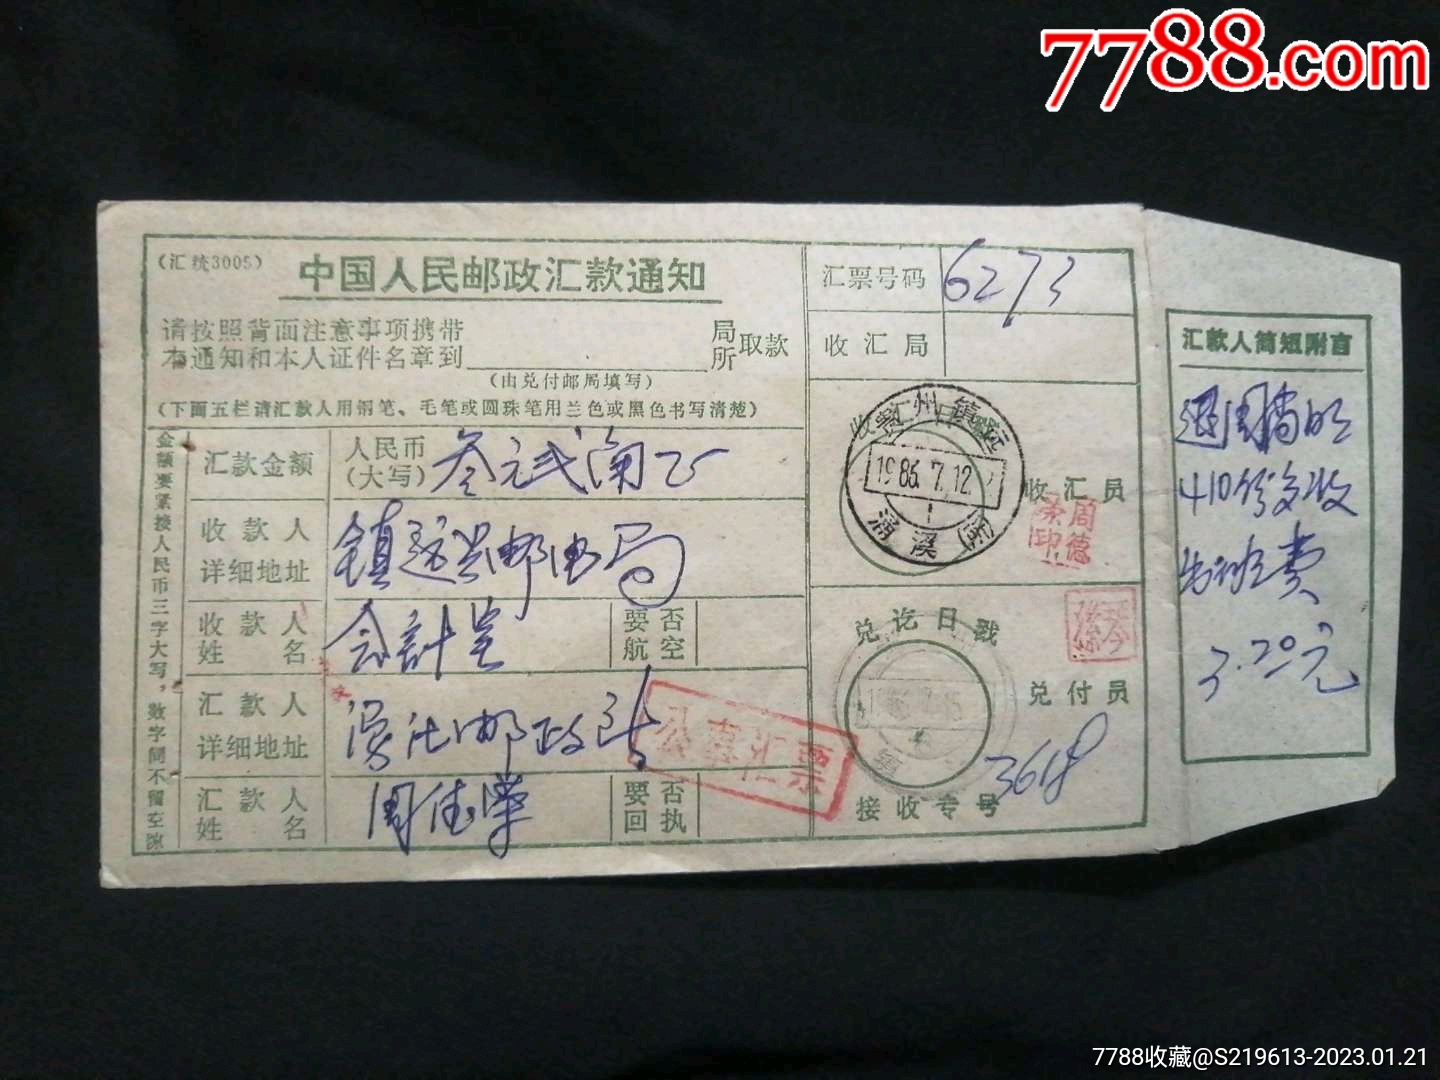 7788.com
(汇统3005)
中国人民邮政汇款通知
请按照背面注意事项携带
本通知和本人证件名章到
局
所
取款
(由兑付邮局填写)
(下面五栏请汇款人用钢笔、毛笔或圆珠笔用兰色或黑色书写清楚)
金额要紧接人民币三字大写，数字间不留空隙
汇款金额
人民币
(大写)
叁元贰角正
收款人
详细地址
镇远县邮电局
收款人
姓名
会計室
要否
航空
汇款人
详细地址
邮政
汇款人
姓名
周德荣
要否
回执
公事汇票
汇票号码
6273
收汇局
贵州镇远
1986.7.12
涌溪
收汇员
周德
荣印
兑讫日戳
兑付员
接收专号
3618
汇款人简短附言
410份
费
3.20元
7788收藏@S219613-2023.01.21